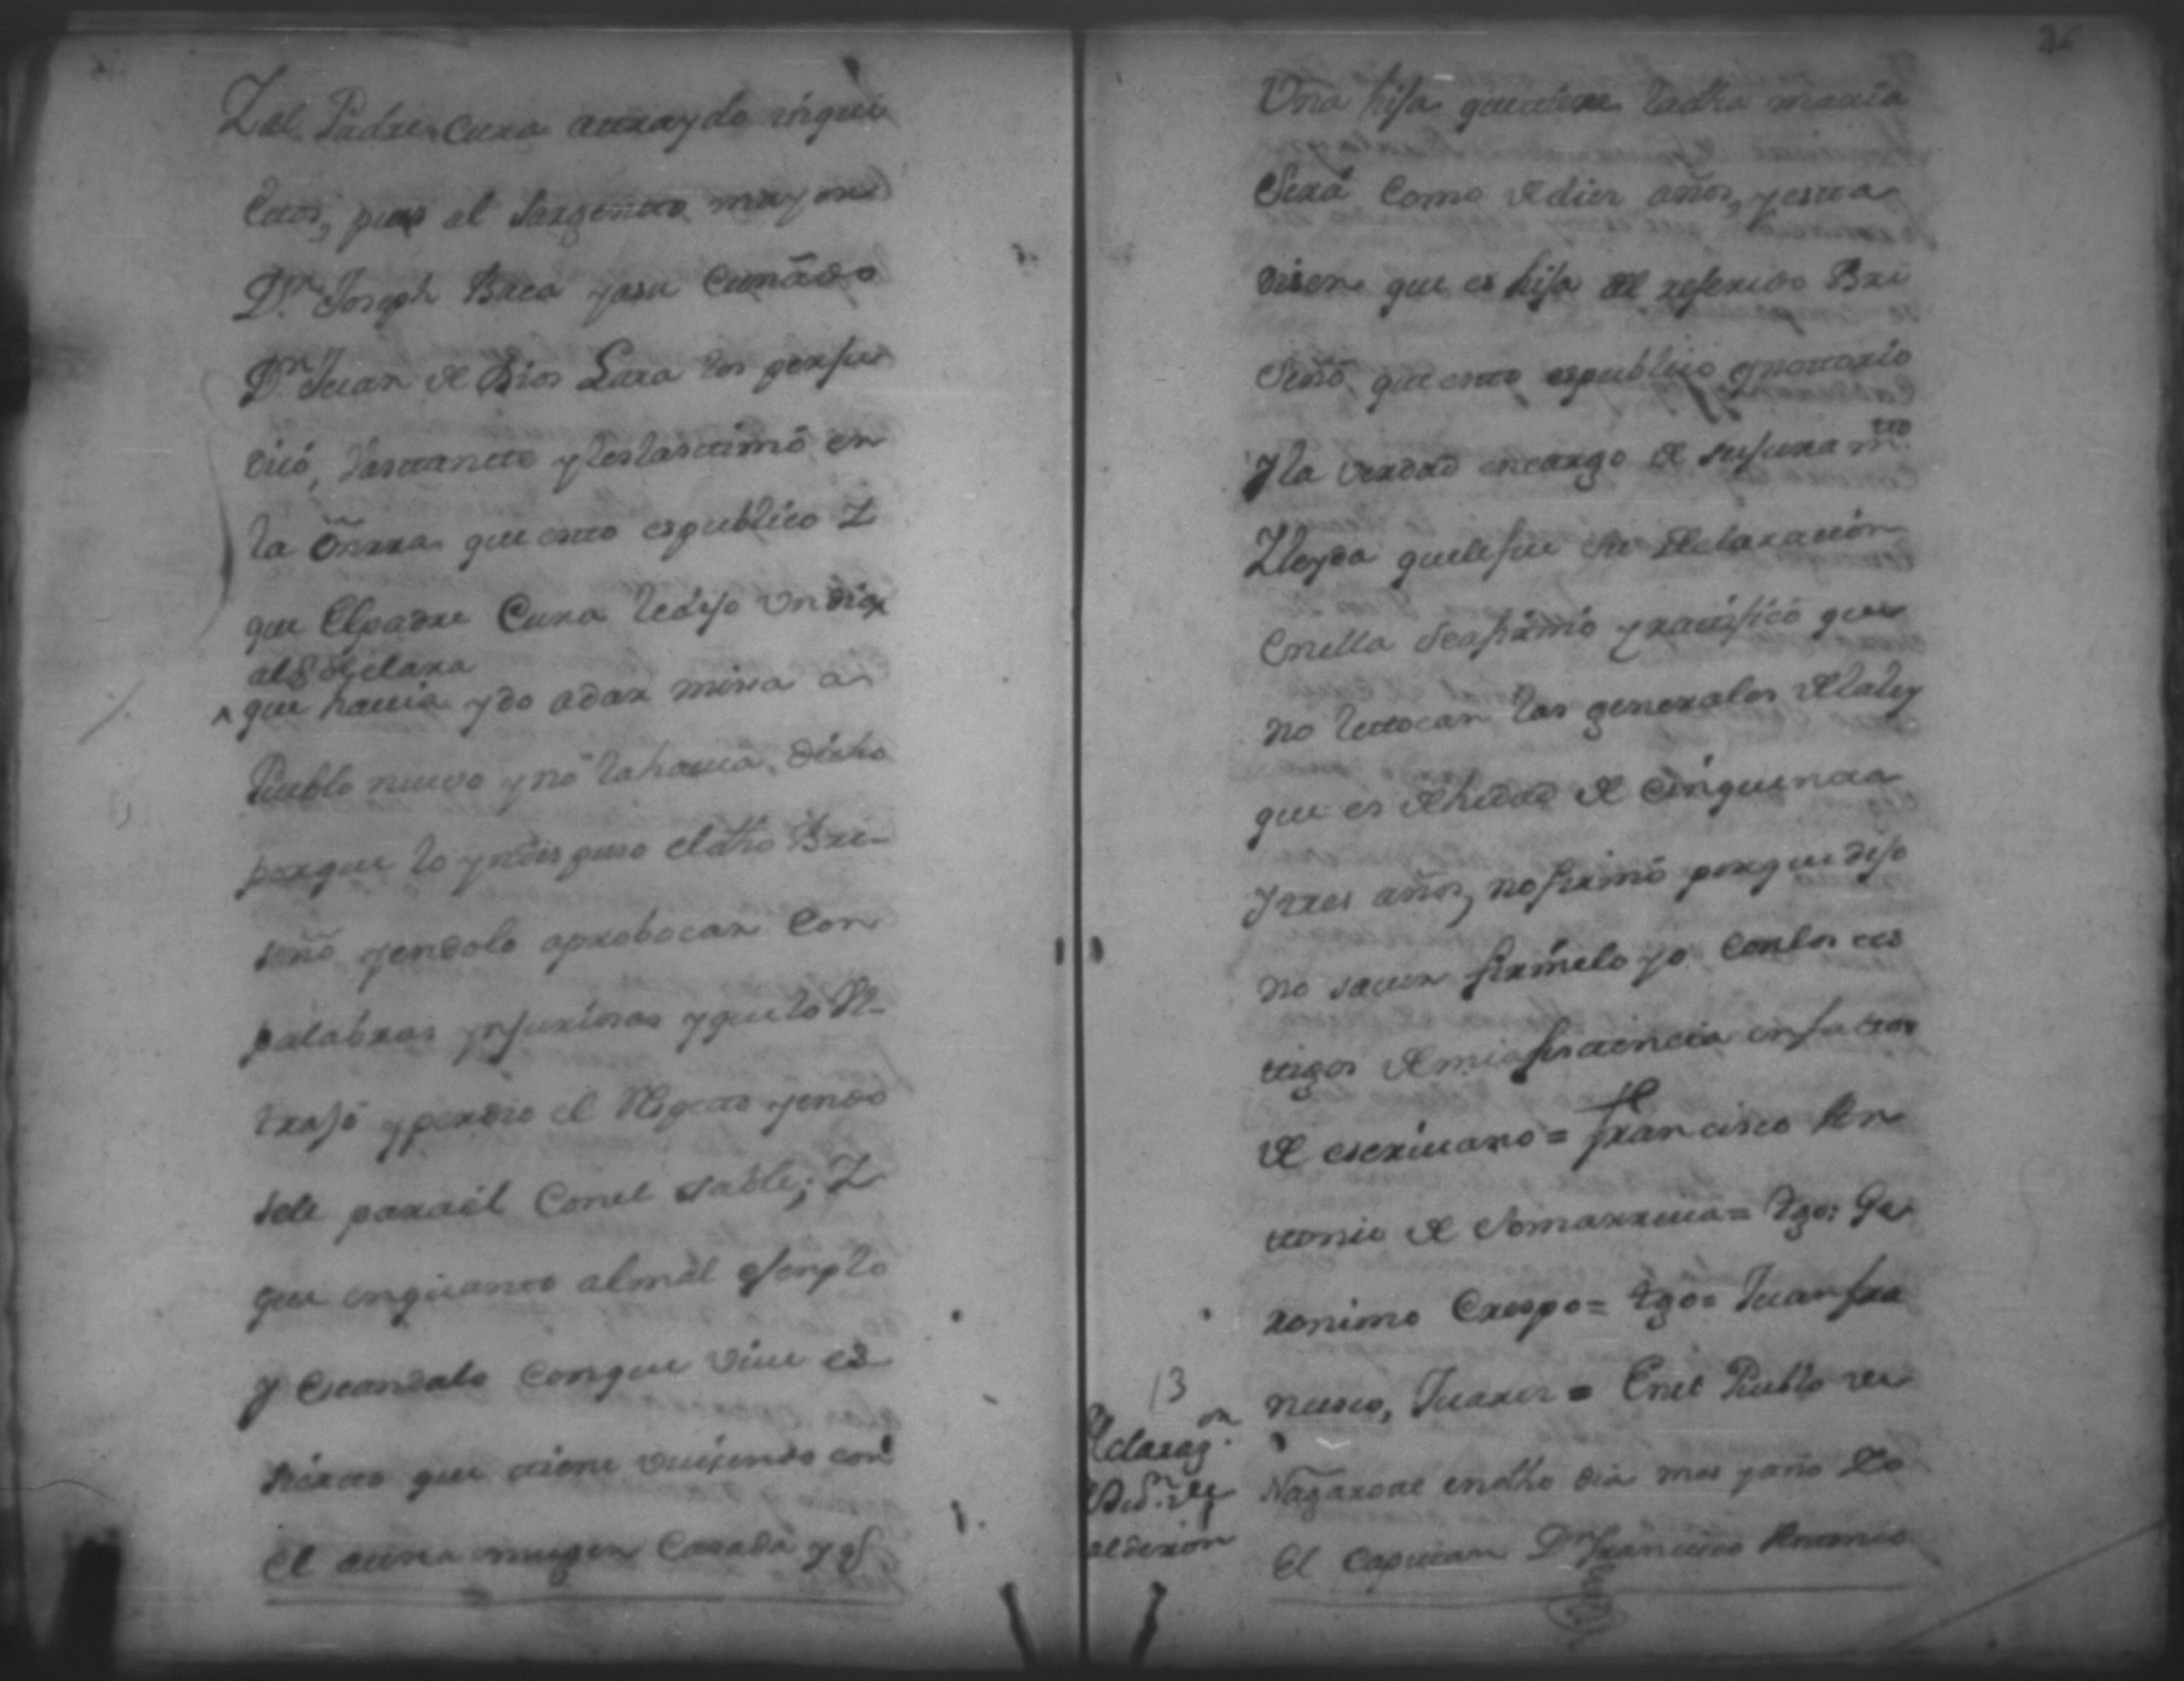 Y al Padre Cura atraydo inquie
ttos, pues al Sargentto mayor
Dn Joseph Baca y asu Cuñado
Dn Juan de Dios Lara los perju
dicó, vastantte y les lastimó en
la onrra que estto es publico Y
que El padre Cura le dijo Un dia
al q declara
que havia ydo a dar misa a
Pueblo nuevo y nó la havia dicho
porque lo yndispuso el dho Bri-
seño yendolo a probocar Con
palabras ynjuriosas y que lo Ul-
trajó y perdio el Respetto yendo
sele para él Con el sable; Y
que en quanto al mal ejemplo
y Escandalo Con que vive es
sierto que tiene viviendo con
el a una muger Casada y q
Una hija que tiene la dha maria
Será Como de dies años, y esta
disen que es hija del referido Bri
Seño que esto es publico y notorio
Y la verdad encargo de su juram.tto
Y leyda que le fue su declarazion
En ella se afirmó y ratificó que
no le tocan las generales de la ley
que es de hedad de cinquenta
y tres años, no firmó porque dijo
no saver firmelo yo Con los tes
tigos de mi asistencia en falta
de escrivano = Francisco An
tonio de Somarriva = Tgo: Ge
ronimo Crespo = tgo = Juan fra
nsisco, Juares = En el Pueblo de
Nagarote en dho dia mes y año Yo
El Capitan Dn Francisco Antonio
13
Declaraz.on
alderon